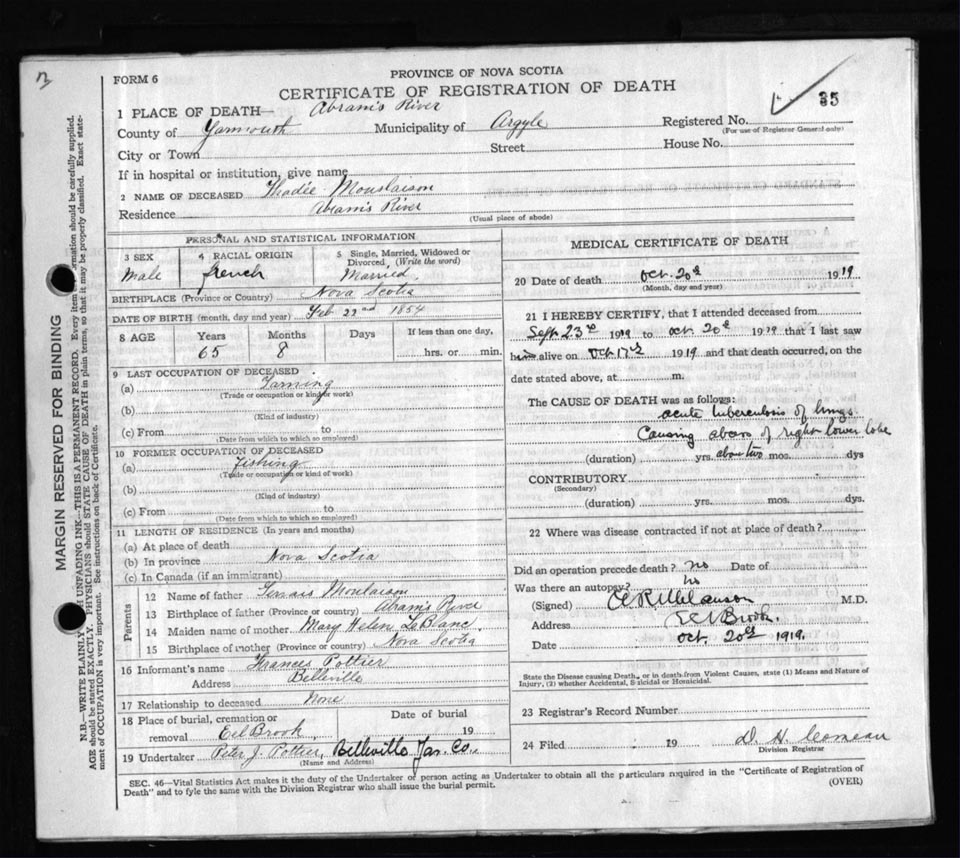 3
FORM 6
PROVINCE OF NOVA SCOTIA
CERTIFICATE OF REGISTRATION OF DEATH
35
1 PLACE OF DEATH— Abram's River
County of Yarmouth Municipality of Argyle Registered No.
(For use of Registrar General only)
City or Town Street House No.
If in hospital or institution, give name
2 NAME OF DECEASED Thadée Mouslaison
Residence Abram's River
(Usual place of abode)
PERSONAL AND STATISTICAL INFORMATION
3 SEX 4 RACIAL ORIGIN 5 Single, Married, Widowed or Divorced, (Write the word)
Male french Married.
BIRTHPLACE (Province or Country) Nova Scotia
DATE OF BIRTH (month, day and year) Feb 22nd 1854
8 AGE Years Months Days If less than one day,
65 8 hrs. or min.
9 LAST OCCUPATION OF DECEASED
(a) Farming
(Trade or occupation or kind of work)
(b)
(Kind of industry)
(c) From to
(Date from which to which so employed)
10 FORMER OCCUPATION OF DECEASED
(a) Fishing
(Trade or occupation or kind of work)
(b)
(Kind of industry)
(c) From to
(Date from which to which so employed)
11 LENGTH OF RESIDENCE (In years and months)
(a) At place of death
(b) In province Nova Scotia
(c) In Canada (if an immigrant)
Parents
12 Name of father Moulaison
13 Birthplace of father (Province or country) Abram's River
14 Maiden name of mother Mary Helen LeBlanc.
15 Birthplace of mother (Province or country) Nova Scotia
16 Informant's name Frances Pottier
Address Belleville
17 Relationship to deceased None
18 Place of burial, cremation or Date of burial
removal Eel Brook. 19
19 Undertaker Peter J. Pottier, Belleville Yar. Co.
(Name and Address)
MEDICAL CERTIFICATE OF DEATH
20 Date of death Oct. 20th 1919
(Month, day and year)
21 I HEREBY CERTIFY, that I attended deceased from
Sept 23rd 1919 to Oct 20th 1919 that I last saw
him alive on Oct 17th 1919 and that death occurred, on the
date stated above, at m.
The CAUSE OF DEATH was as follows:
acute tuberculosis of lungs
Causing absess of right lower lobe
(duration) yrs. about two mos. dys
CONTRIBUTORY
(Secondary)
(duration) yrs. mos. dys.
22 Where was disease contracted if not at place of death?
Did an operation precede death? no Date of
Was there an autopsy? no
(Signed) M.D.
Address Brook.
Date Oct. 20th 1919.
State the Disease causing Death, or in death from Violent Causes, state (1) Means and Nature of
Injury, (2) whether Accidental, Suicidal or Homicidal.
23 Registrar's Record Number
24 Filed 19 D. H. Comeau
Division Registrar
SEC. 46—Vital Statistics Act makes it the duty of the Undertaker or person acting as Undertaker to obtain all the particulars required in the "Certificate of Registration of
Death" and to fyle the same with the Division Registrar who shall issue the burial permit.
(OVER)
MARGIN RESERVED FOR BINDING
N.B.—WRITE PLAINLY, UNFADING INK—THIS IS A PERMANENT RECORD. Every item of information should be carefully supplied.
AGE should be stated EXACTLY. PHYSICIANS should STATE CAUSE OF DEATH in plain terms, so that it may be properly classified. Exact state-
ment of OCCUPATION is very important. See instructions on back of Certificate.